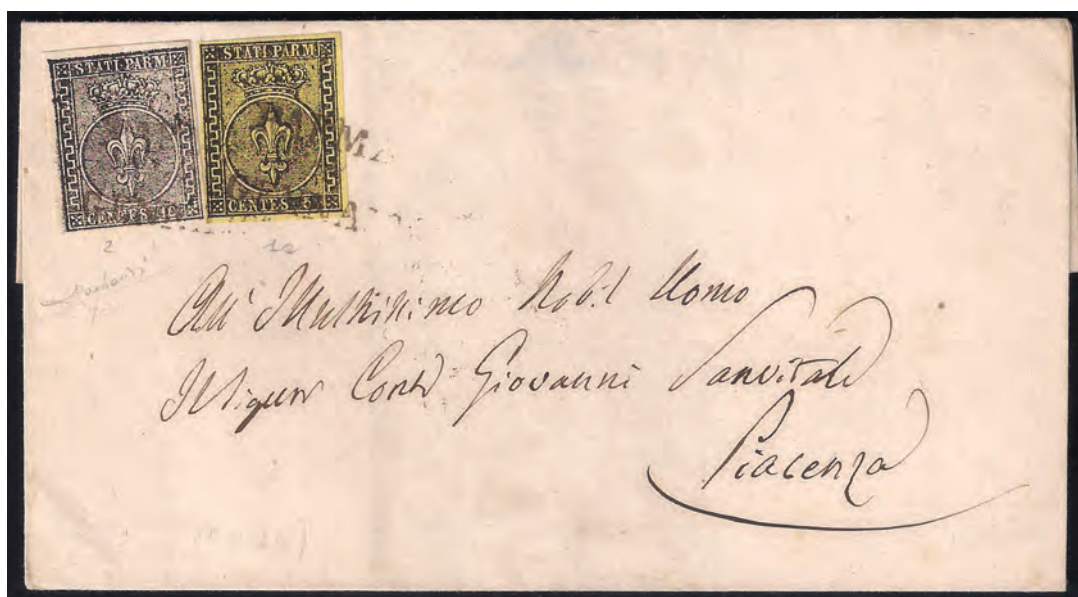 STATI PARM.
CENTES. 10
STATI PARM.
CENTES. 5
2
1a
All' Illustrissimo Nobil Uomo
Il Signor Conte Giovanni Sanvitale
Piacenza